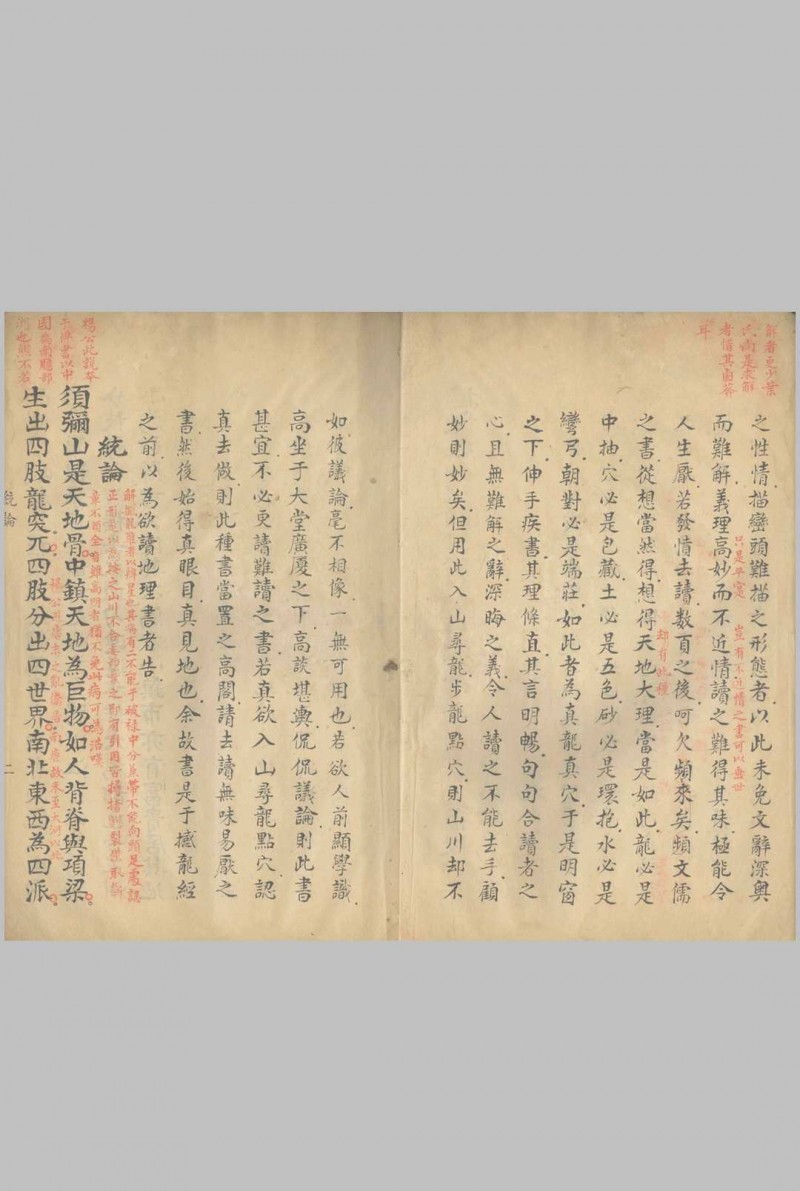 解者更少葉
氏尚是求解
者惜其自蔡
耳
之性情描巒頭難描之形態者以此未免文辭深奧
而難解義理高妙而不近情讀之難得其味極能令
只是平實 豈有不近情之書可以盡世
人生厭若發憤去讀數頁之後呵欠頻來矣頻文儒
之書從想當然得想得天地大理當是如此龍必是
却有此種
中抽穴必是包藏土必是五色砂必是環抱水必是
彎弓朝對必是端莊如此者為真龍真穴于是明窗
之下伸手疾書其理條直其言明暢句句合讀者之
心且無難解之辭深晦之義令人讀之不能去手顧
妙則妙矣但用此入山尋龍步龍點穴則山川却不
如彼議論毫不相像一無可用也若欲人前顯學識
高坐于大堂廣廈之下高談堪輿侃侃議論則此書
甚宜不必更讀難讀之書若真欲入山尋龍點穴認
真去做則此種書當置之高閣請去讀無味易厭之
書然後始得真眼目真見地也余故書是于撼龍經
之前以為欲讀地理書者告
統論
楊公此說本
國為南贍部
洲也說不若
須彌山是天地骨中鎮天地為巨物如人背脊與項梁
生出四肢龍突兀四肢分出四世界南北東西為四派
統論
二